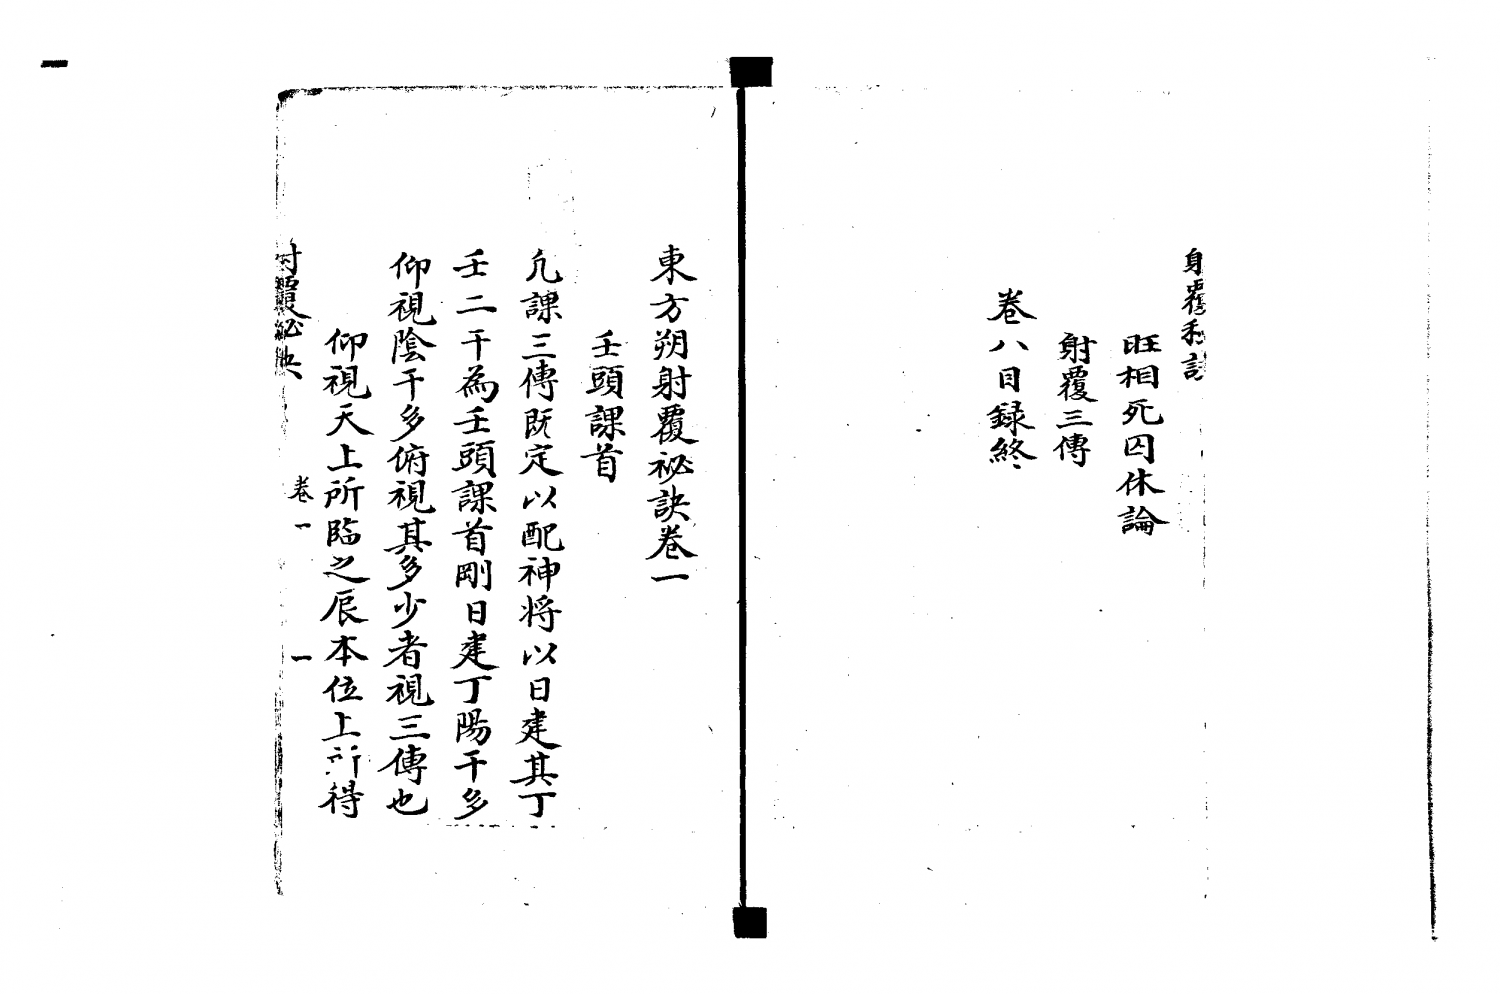 射覆秘訣
旺相死囚休論
射覆三傳
卷八目録終
東方朔射覆祕訣卷一
壬頭課首
凢課三傳既定以配神将以日建其丁
壬二干為壬頭課首剛日建丁陽干多
仰視陰干多俯視其多少者視三傳也
仰視天上所臨之辰本位上所得
射覆祕訣
卷一
一